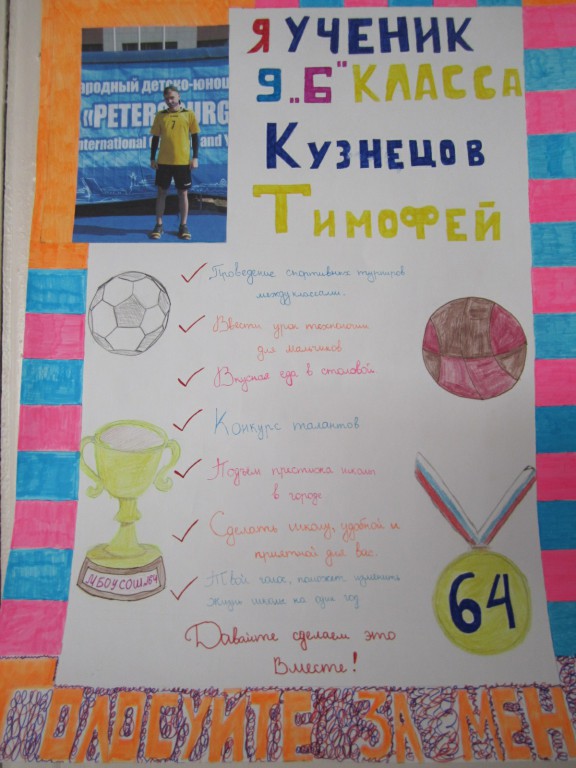 Я УЧЕНИК
9 „Б" КЛАССА
КУЗНЕЦОВ
ТИМОФЕЙ
родный детско-юнош
«PETER URG
nternational and Y
7
✓ Проведение спортивных турниров
между классами.
✓ Ввести урок технологии
для мальчиков
✓ Вкусная еда в столовой.
✓ Конкурс талантов
✓ Подъем престижа школы
в городе
✓ Сделать школу, удобной и
приятной для вас.
✓ Твой голос, поможет изменить
жизнь школы на один год
Давайте сделаем это
Вместе!
МБОУСОШ№64
64
ГОЛОСУЙТЕ ЗА МЕН